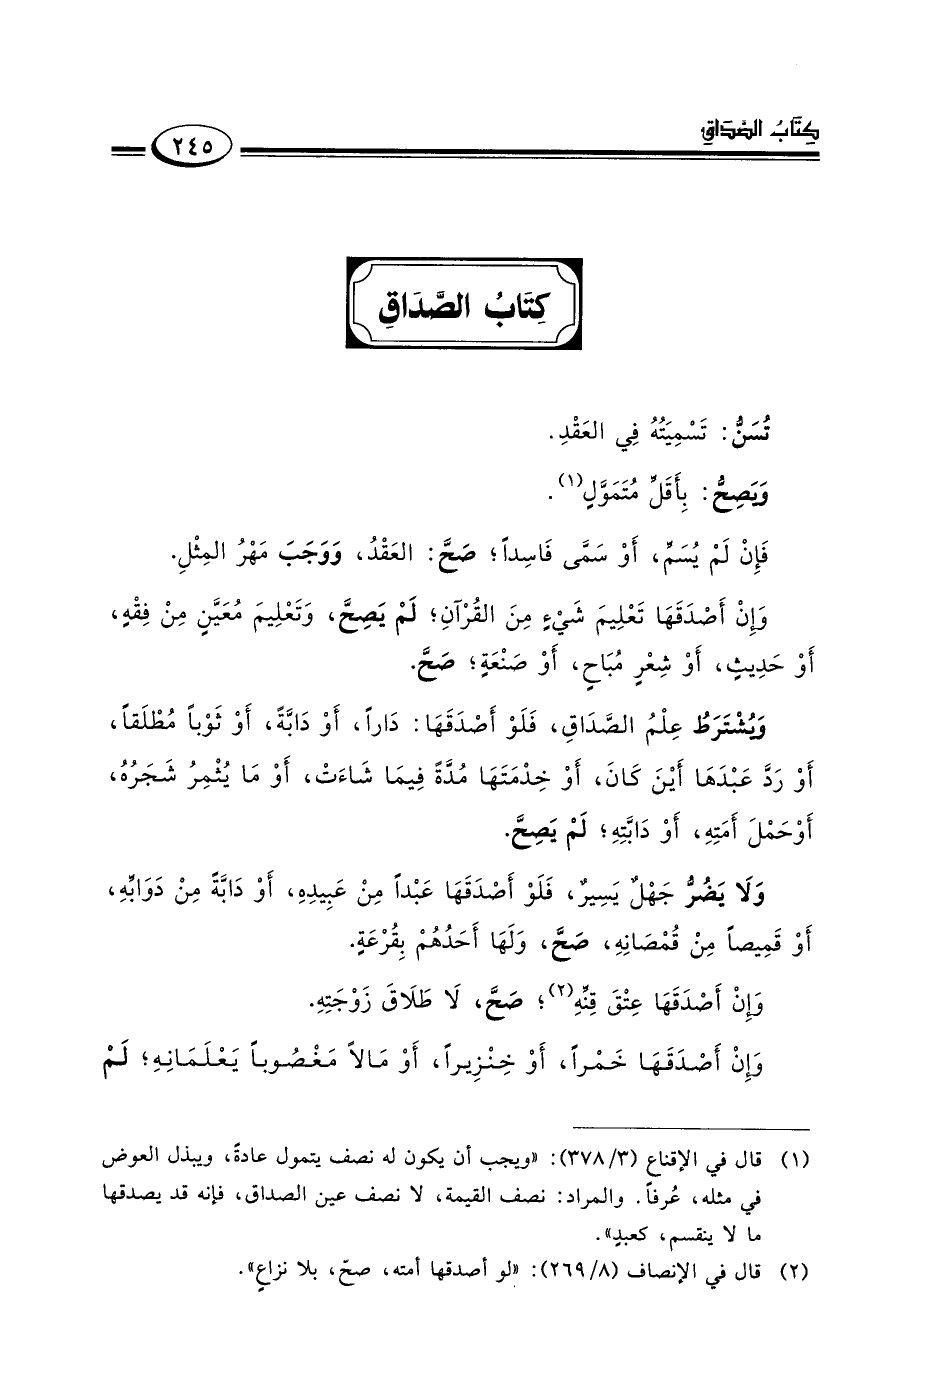 كِتَابُ الصَّدَاقِ
٢٤٥
كِتَابُ الصَّدَاقِ
تُسَنُّ: تَسْمِيَتُهُ فِي العَقْدِ.
وَيَصِحُّ: بِأَقَلِّ مُتَمَوَّلٍ(١).
فَإِنْ لَمْ يُسَمِّ، أَوْ سَمَّى فَاسِداً؛ صَحَّ: العَقْدُ، وَوَجَبَ مَهْرُ المِثْلِ.
وَإِنْ أَصْدَقَهَا تَعْلِيمَ شَيْءٍ مِنَ القُرْآنِ؛ لَمْ يَصِحَّ، وَتَعْلِيمَ مُعَيَّنٍ مِنْ فِقْهٍ،
أَوْ حَدِيثٍ، أَوْ شِعْرٍ مُبَاحٍ، أَوْ صَنْعَةٍ؛ صَحَّ.
وَيُشْتَرَطُ عِلْمُ الصَّدَاقِ، فَلَوْ أَصْدَقَهَا: دَاراً، أَوْ دَابَّةً، أَوْ ثَوْباً مُطْلَقاً،
أَوْ رَدَّ عَبْدَهَا أَيْنَ كَانَ، أَوْ خِدْمَتَهَا مُدَّةً فِيمَا شَاءَتْ، أَوْ مَا يُثْمِرُ شَجَرُهُ،
أَوْحَمْلَ أَمَتِهِ، أَوْ دَابَّتِهِ؛ لَمْ يَصِحَّ.
وَلَا يَضُرُّ جَهْلٌ يَسِيرٌ، فَلَوْ أَصْدَقَهَا عَبْداً مِنْ عَبِيدِهِ، أَوْ دَابَّةً مِنْ دَوَابِّهِ،
أَوْ قَمِيصاً مِنْ قُمْصَانِهِ، صَحَّ، وَلَهَا أَحَدُهُمْ بِقُرْعَةٍ.
وَإِنْ أَصْدَقَهَا عِتْقَ قِنِّهِ(٢)؛ صَحَّ، لَا طَلَاقَ زَوْجَتِهِ.
وَإِنْ أَصْدَقَهَا خَمْراً، أَوْ خِنْزِيراً، أَوْ مَالاً مَغْصُوباً يَعْلَمَانِهِ؛ لَمْ
(١) قال في الإقناع (٣/ ٣٧٨): «ويجب أن يكون له نصف يتمول عادةً، ويبذل العوض
في مثله، عُرفاً. والمراد: نصف القيمة، لا نصف عين الصداق، فإنه قد يصدقها
ما لا ينقسم، كعبدٍ».
(٢) قال في الإنصاف (٨/ ٢٦٩): «لو أصدقها أمته، صحّ، بلا نزاعٍ».